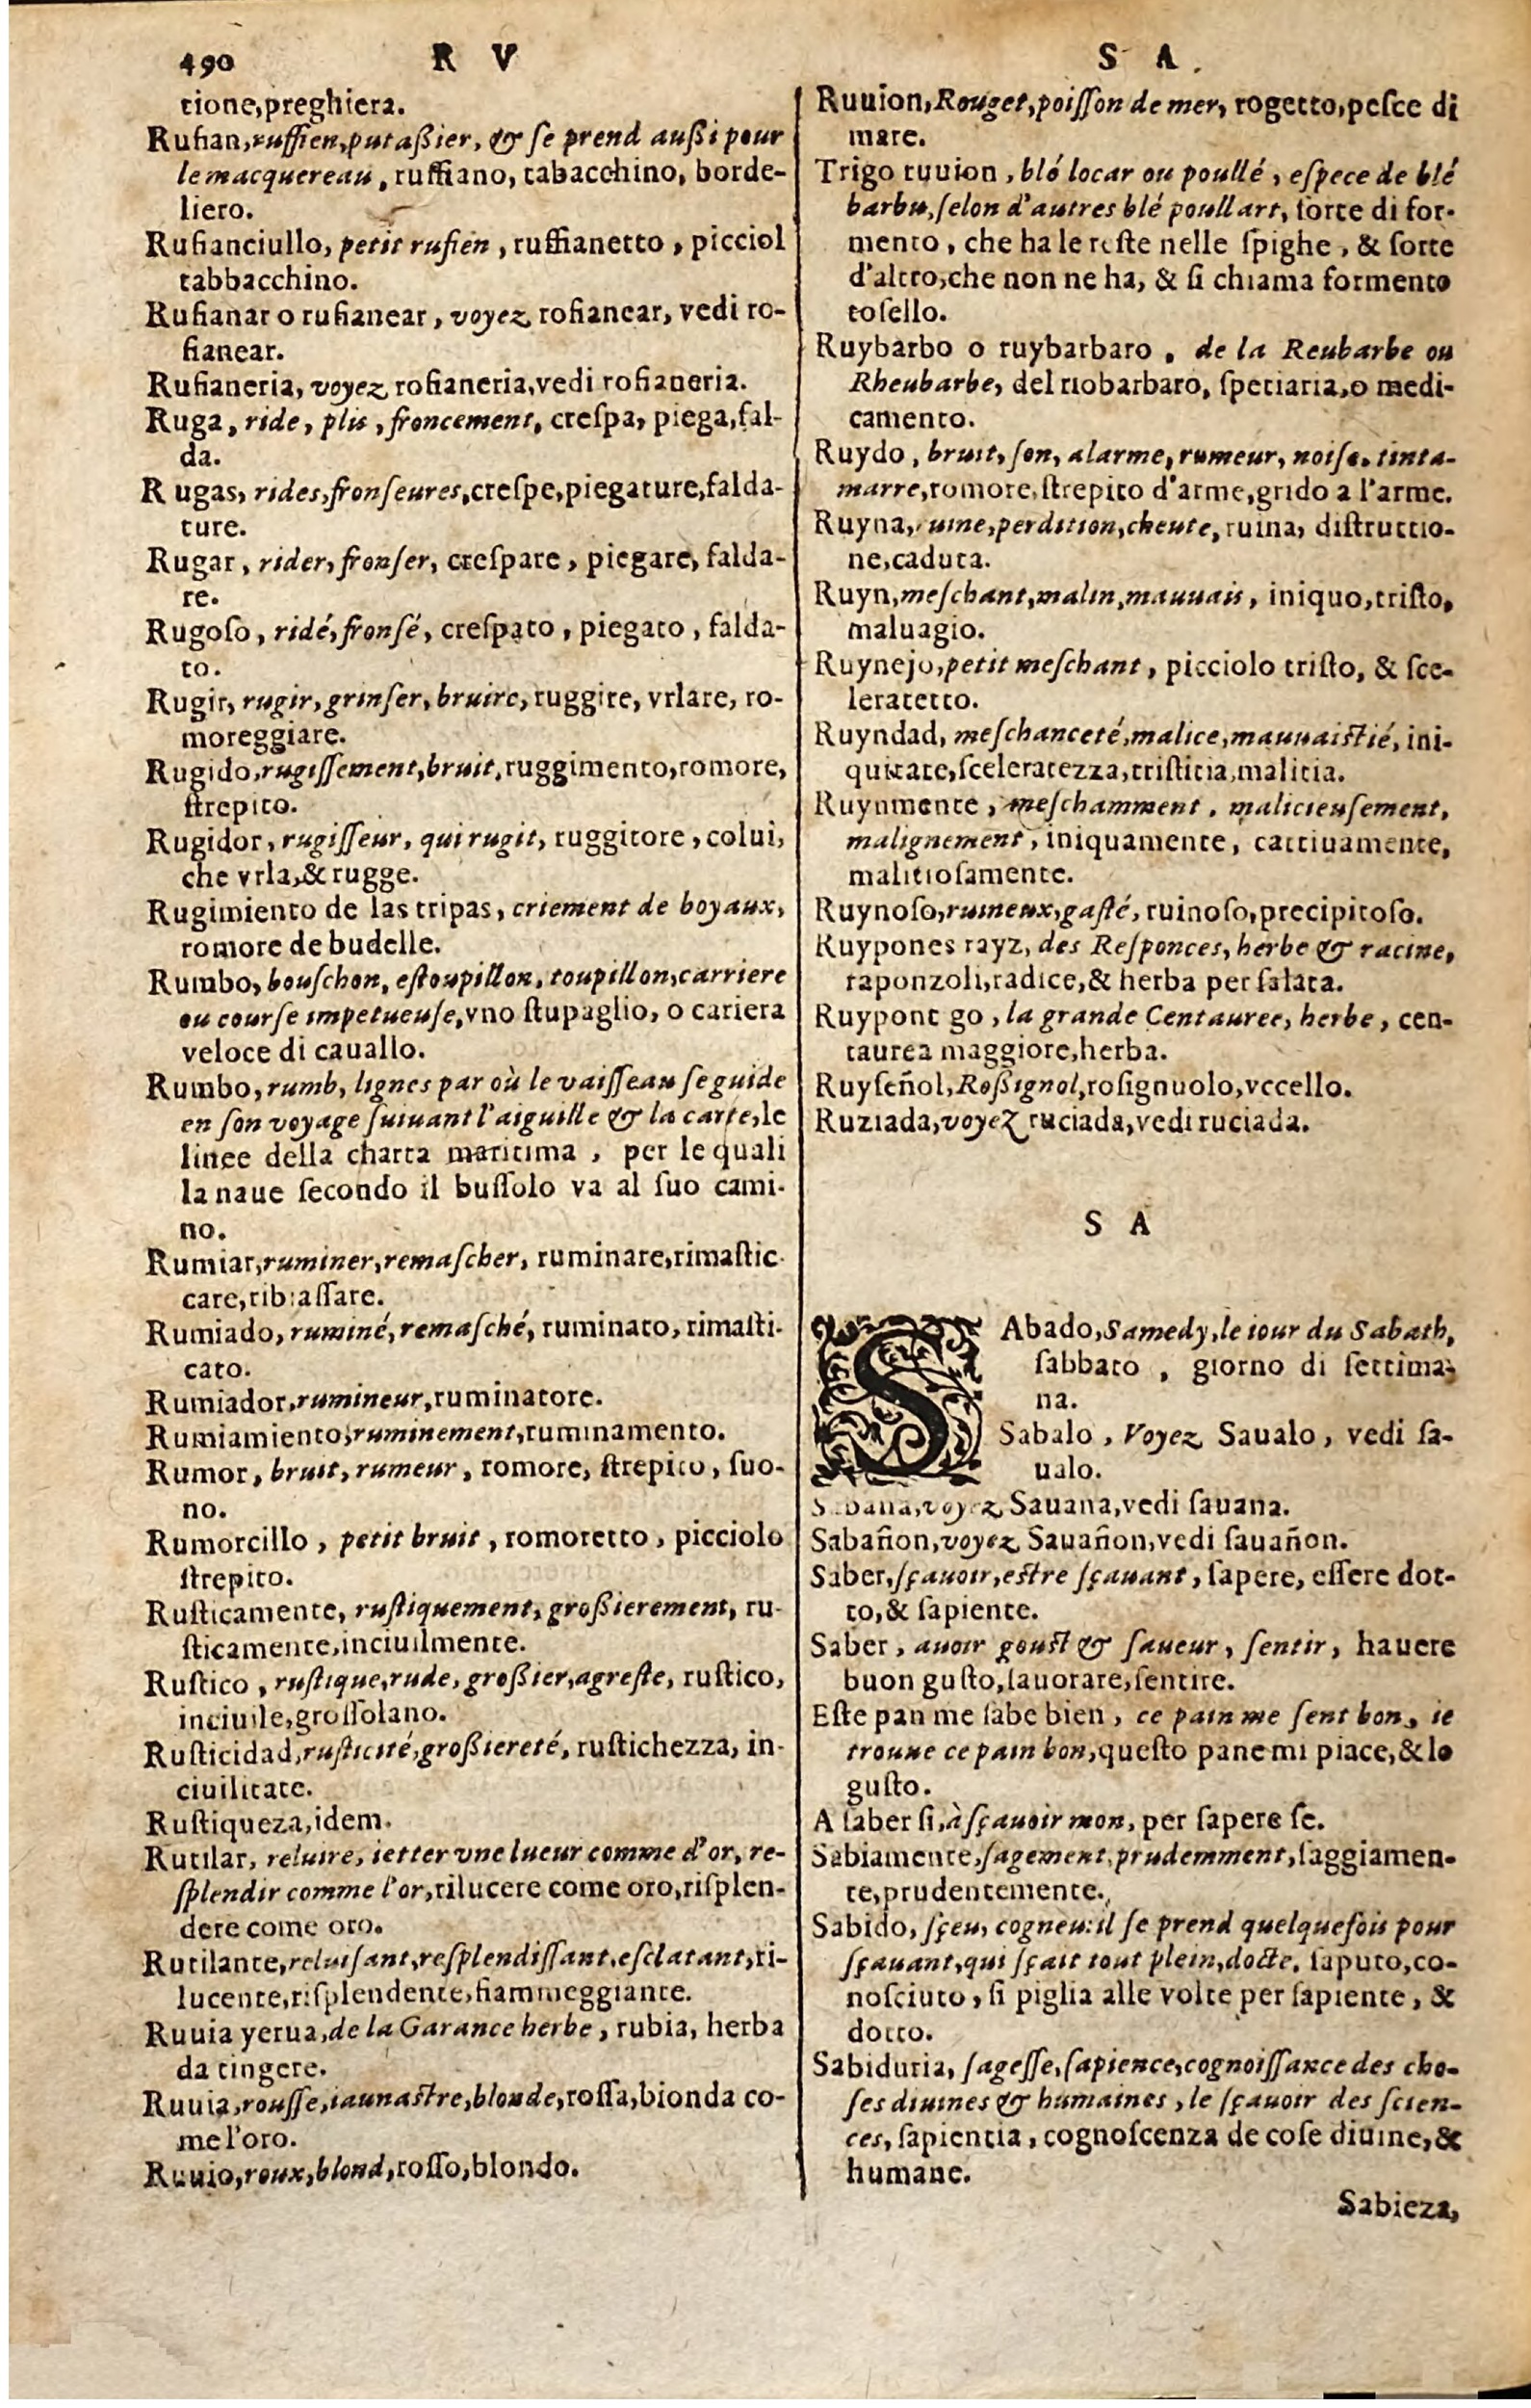 490 R V
tione,preghiera.
Rufian,ruffien,putaßier, & ſe prend außi pour
le macquereau, ruffiano, tabacchino, borde-
liero.
Rufianciullo, petit rufien, ruffianetto, picciol
tabbacchino.
Rufianar o rufianear, voyez rofianear, vedi ro-
fianear.
Rufianeria, voyez rofianeria,vedi rofianeria.
Ruga, ride, plis, froncement, creſpa, piega,fal-
da.
Rugas, rides,fronſeures,creſpe,piegature,falda-
ture.
Rugar, rider, fronſer, creſpare, piegare, falda-
re.
Rugoſo, ridé, fronſé, creſpato, piegato, falda-
to.
Rugir, rugir, grinſer, bruire, ruggire, vrlare, ro-
moreggiare.
Rugido,rugiſſement,bruit,ruggimento,romore,
ſtrepito.
Rugidor, rugiſſeur, qui rugit, ruggitore, colui,
che vrla,& rugge.
Rugimiento de las tripas, criement de boyaux,
romore de budelle.
Rumbo, bouſchon, eſtoupillon, toupillon,carriere
ou courſe impetueuſe,vno ſtupaglio, o cariera
veloce di cauallo.
Rumbo, rumb, lignes par où le vaiſſeau ſe guide
en ſon voyage ſuiuant l'aiguille & la carte,le
linee della charta maritima, per le quali
la naue ſecondo il buſſolo va al ſuo cami-
no.
Rumiar,ruminer,remaſcher, ruminare,rimaſtic-
care,ribiaſſare.
Rumiado, ruminé, remaſché, ruminato, rimaſti-
cato.
Rumiador,rumineur,ruminatore.
Rumiamiento,ruminement,ruminamento.
Rumor, bruit, rumeur, romore, ſtrepito, ſuo-
no.
Rumorcillo, petit bruit, romoretto, picciolo
ſtrepito.
Ruſticamente, ruſtiquement, großierement, ru-
ſticamente,inciuilmente.
Ruſtico, ruſtique,rude, großier,agreſte, ruſtico,
inciuile,groſſolano.
Ruſticidad,ruſticité,großiereté, ruſtichezza, in-
ciuilitate.
Ruſtiqueza,idem.
Rutilar, reluire, ietter vne lueur comme d'or, re-
ſplendir comme l'or,rilucere come oro,riſplen-
dere come oro.
Rutilante,reluiſant,reſplendiſſant,eſclatant,ri-
lucente,riſplendente,fiammeggiante.
Ruuia yerua,de la Garance herbe, rubia, herba
da tingere.
Ruuia,rouſſe,iaunaſtre,blonde,roſſa,bionda co-
me l'oro.
Ruuio,roux,blond,roſſo,blondo.
S A.
Ruuion,Rouget,poiſſon de mer, rogetto,peſce di
mare.
Trigo ruuion, blé locar ou poullé, eſpece de blé
barbu,ſelon d'autres blé poullart, ſorte di for-
mento, che ha le reſte nelle ſpighe, & ſorte
d'altro,che non ne ha, & ſi chiama formento
toſello.
Ruybarbo o ruybarbaro, de la Reubarbe ou
Rheubarbe, del riobarbaro, ſpetiaria,o medi-
camento.
Ruydo, bruit, ſon, alarme, rumeur, noiſe, tinta-
marre,romore,ſtrepito d'arme,grido a l'arme.
Ruyna, uine,perdition,cheute, ruina, diſtruttio-
ne,caduta.
Ruyn,meſchant,malin,mauuais, iniquo,triſto,
maluagio.
Ruynejo,petit meſchant, picciolo triſto, & ſce-
leratetto.
Ruyndad, meſchanceté,malice,mauuaiſtié, ini-
quitate,ſceleratezza,triſtitia,malitia.
Ruynmente, meſchamment, malicieuſement,
malignement, iniquamente, cattiuamente,
malitioſamente.
Ruynoſo,ruineux,gaſté, ruinoſo,precipitoſo.
Ruypones rayz, des Reſponces, herbe & racine,
raponzoli,radice,& herba per ſalata.
Ruypont go, la grande Centauree, herbe, cen-
taurea maggiore,herba.
Ruyſeñol,Roßignol,roſignuolo,vccello.
Ruziada,voyez ruciada,vedi ruciada.
S A
SAbado,Samedy,le iour du Sabath,
ſabbato, giorno di ſettima-
na.
Sabalo, Voyez Saualo, vedi ſa-
ualo.
Sabana,voyez Sauana,vedi ſauana.
Sabañon,voyez Sauañon,vedi ſauañon.
Saber,ſçauoir,eſtre ſçauant, ſapere, eſſere dot-
to,& ſapiente.
Saber, auoir gouſt & ſaueur, ſentir, hauere
buon guſto,ſauorare,ſentire.
Eſte pan me ſabe bien, ce pain me ſent bon, ie
trouue ce pain bon,queſto pane mi piace,& lo
guſto.
A ſaber ſi,à ſçauoir mon, per ſapere ſe.
Sabiamente,ſagement,prudemment,ſaggiamen-
te,prudentemente.
Sabido, ſçeu, cogneu:il ſe prend quelquefois pour
ſçauant,qui ſçait tout plein,docte, ſaputo,co-
noſciuto, ſi piglia alle volte per ſapiente, &
dotto.
Sabiduria, ſageſſe,ſapience,cognoiſſance des cho-
ſes diuines & humaines, le ſçauoir des ſcien-
ces, ſapientia, cognoſcenza de coſe diuine,&
humane.
Sabieza,